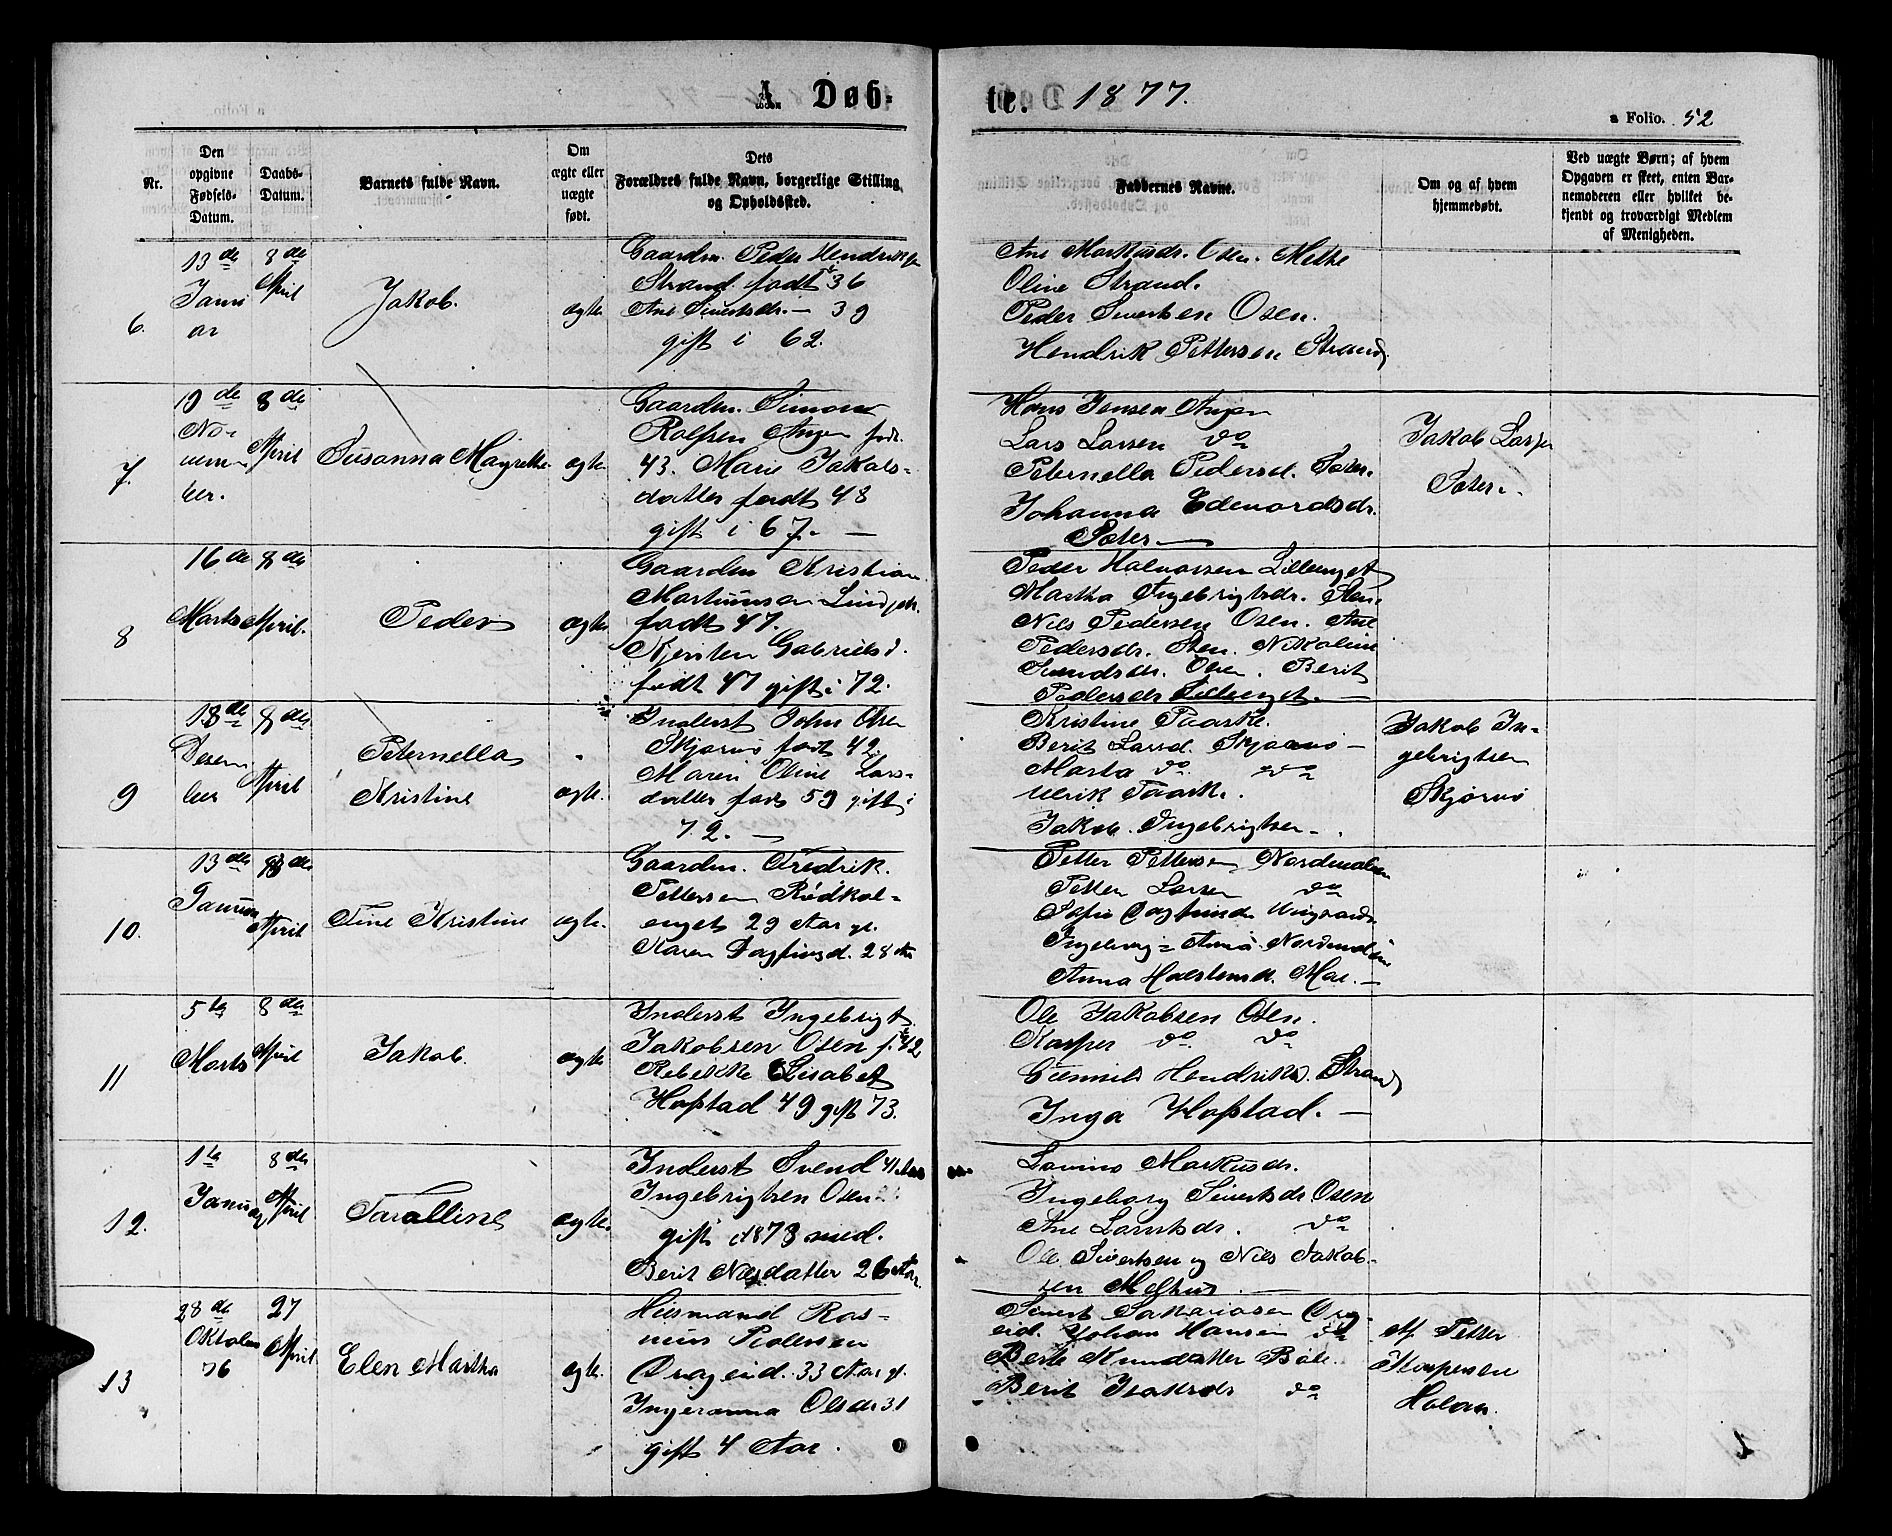 A. Døb-
te. 1877.
a Folio. 52
Nr.
Den opgivne Fødsels-Datum.
Daabs-Datum.
Barnets fulde Navn.
Om ægte eller uægte født.
Dets Forældres fulde Navn, borgerlige Stilling og Opholdssted.
Faddernes Navne.
Om og af hvem hjemmedøbt.
Ved uægte Børn; af hvem Opgaven er skeet, enten Barnemoderen eller hvilket bekjendt og troværdigt Medlem af Menigheden.
6.
13de Januar
8de April
Jakob.
ægte
Gaardm. Peder Hendriks
Strand født 36
Ane Sivertsdr. — 39
gift i 62.
Ane Markusdr. Osen. Mette
Oline Strand.
Peder Sivertsen Osen.
Hendrik Pettersen Strand
7.
19de November.
8de April
Susanna Magrethe
ægte
Gaardm. Simon
Rolfsen Angen født
43. Marie Jakobs-
datter født 48
gift i 67. —
Hans Jensen Angen
Lars Larsen do
Peternella Pedersd. Sæter.
Johanna Edevardsdr.
Sæter —
Jakob Larsen
Sæter.
8
16de Marts
8de April.
Peder
ægte
Gaardm Kristian
Martinusen
født 47.
Kjersten Gabrielsd.
født 47 gift i 72.
Peder Halvorsen Lillenget
Martha Ingebrigtsdr. Sten
Nils Pedersen Osen. Ane
Pedersdr. Sten. Nikoline
Svendsdr. Osen. Berit
Pedersdr Lillenget. —
9
18de Desember
8de April
Peternella
Kristine
ægte.
Inderst John Olsen
Skjærvø født 42.
Maren Oline Lars-
datter født 59 gift i
72. —
Kristine Paaske.
Berit Larsd. Skjærvø —
Marta do do
Ulrik Paaske.
Jakob Ingebrigtsen.
Jakob In-
gebrigtsen
Skjærvø
10.
13de Januar
8de April
Tine Kristine
ægte.
Gaardm. Fredrik
Pettersen Rødkol-
enget 29 Aar gl.
Karen Dagfinsd. 28 Aar
Petter Pettersen Nordmelan
Petter Larsen do
Sofie Dagfinsd.
Ingeborg Anna Nordmelan
Anna
11
5te Marts
8de April
Jakob.
ægte
Inderst Ingebrigt
Jakobsen Osen f. 42
Rebekke Elisabet
Hopstad 49 gift 73.
Ole Jakobsen Osen.
Kasper do do
Gunnild Hendriksd. Strand
Inga Hopstad. —
12.
1te Januar
8de April
Saralline
ægte.
Inderst Svend 41 Aar
Ingebrigtsen Osen
gift i 1873 med.
Berit Nilsdatter 26 Aar.
Lovine Markusdr.
Ingeborg Sivertsdr Osen
Ane Larsdr. do
Ole Sivertsen og Nils Jakob-
sen Melhus.
13
28de Oktober 76
27 April
Elen Martha
ægte.
Husmand Ras-
mus Pedersen
Drageid. 33 Aar gl.
Ingeranna Olsdr 31
gift 4 Aar.
Sivert Sakariasen Drag
eid. Johan Hansen do
Berte Knudatter Bøle.
Berit Isaksdr do
Af Petter
Kaspersen
Holan.